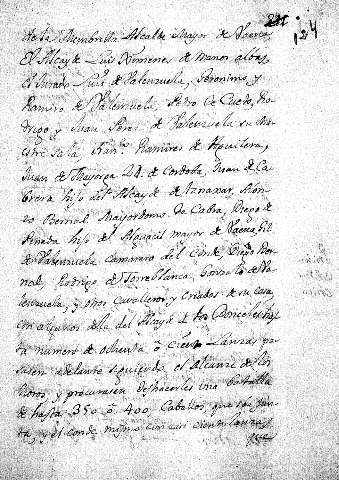 124
de la Membrilla Alcalde Mayor de Baena,
El Alcayde Luis Ximenez de Manos albas,
el Jurado Luis de Valenzuela, Geronimo y
Ramiro de Valenzuela, Pedro de Cueto, Ro-
drigo y Juan Perez de Valenzuela su Ma-
estre Sala, Franco Ramirez de Aguilera,
Juan de Mayorga 24 de Cordoba, Juan de Ca-
brera hijo del Alcayde de Iznaxar, Alon-
so Bernal Mayordomo de Cabra, Diego de
Pineda hijo del Alguacil mayor de Baena, Gil
de Valenzuela camarero del conde, Diego Ber-
nal, Rodrigo de Torreblanca, Gonzalo de Va-
lenzuela, y otros Cavalleros y criados de su casa,
con algunos de la del Alcayde de los Donceles has-
ta numero de ochenta ó cien Lanzas pa-
sasen adelante siguiendo el alcance de los
Moros, y procurasen deshacerles una batalla
de hasta 350 ó 400 Caballos, que se jun-
ta, y el conde mismo con casi cien lanzas